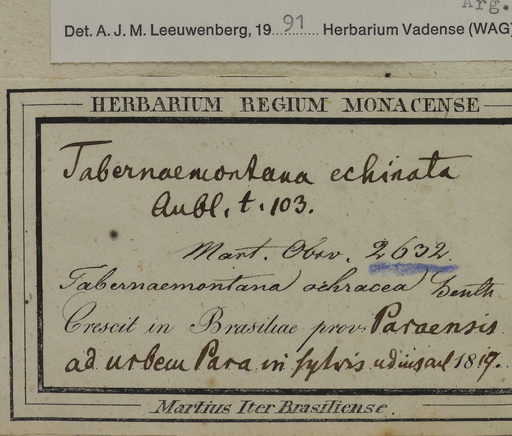 Arg.
Det. A. J. M. Leeuwenberg, 19 91 Herbarium Vadense (WAG)
HERBARIUM REGIUM MONACENSE
Tabernaemontana echinata
Aubl. t. 103.
Mart. Obsv. 2632.
Tabernaemontana ochracea Benth
Crescit in Brasiliae prov. Paraensis
ad urbem Para in sylvis 1819.
Martius Iter Brasiliense.